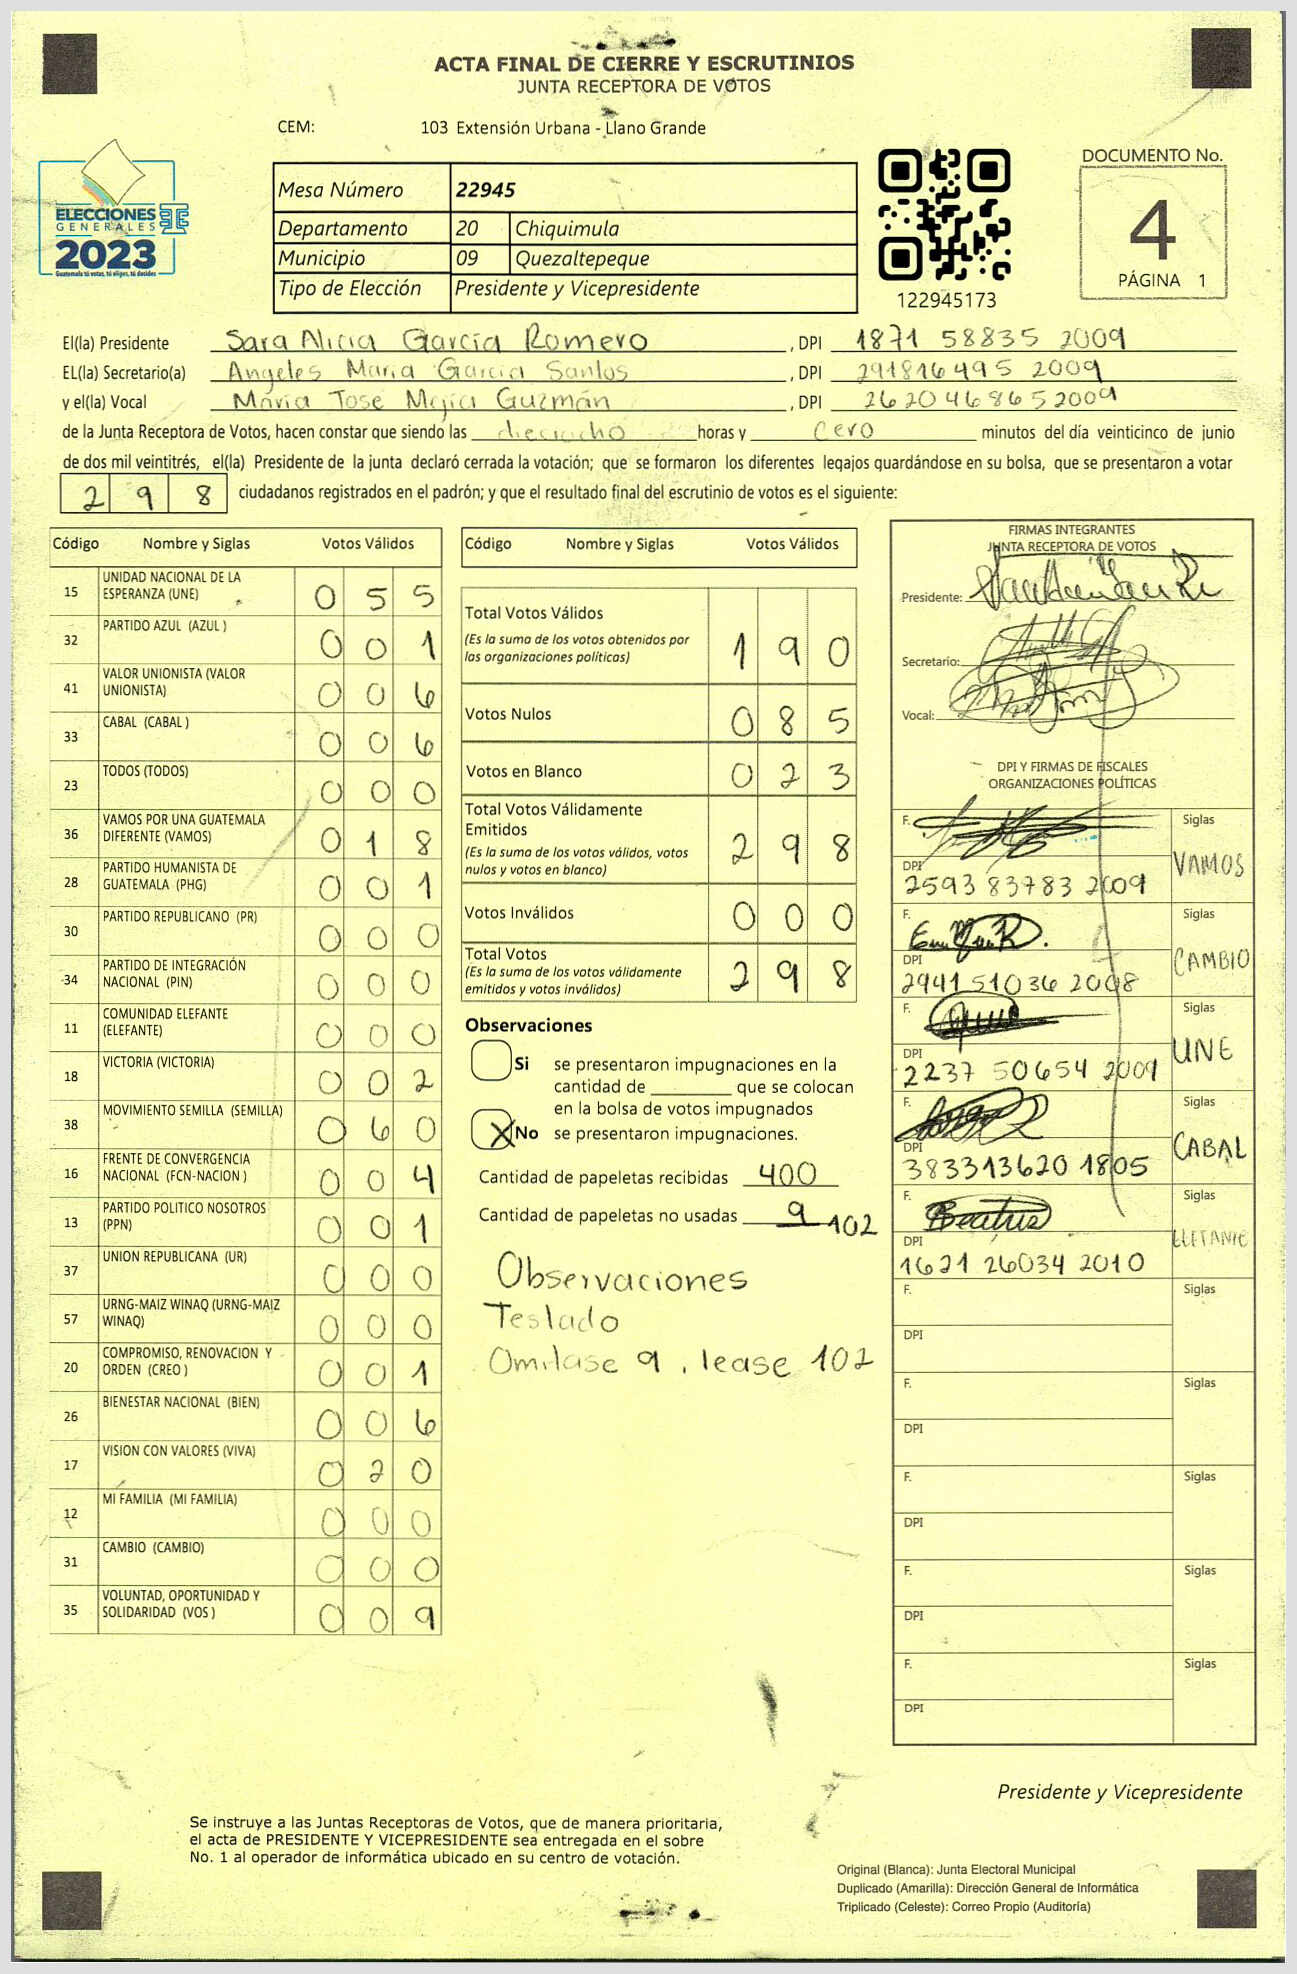 ACTA FINAL DE CIERRE Y ESCRUTINIOS
JUNTA RECEPTORA DE VOTOS
CEM: 103 Extensión Urbana - Llano Grande
ELECCIONES
GENERALES
2023
Guatemala tú votas, tú eliges, tú decides
Mesa Número 22945
Departamento 20 Chiquimula
Municipio 09 Quezaltepeque
Tipo de Elección Presidente y Vicepresidente
122945173
DOCUMENTO No.
4
PÁGINA 1
El(la) Presidente Sara Alicia García Romero, DPI 1871 58835 2009
EL(la) Secretario(a) Angeles Maria Garcia Santos, DPI 291816495 2009
y el(la) Vocal Maria Jose Mejía Guzmán, DPI 2620468652009
de la Junta Receptora de Votos, hacen constar que siendo las dieciocho horas y cero minutos del día veinticinco de junio
de dos mil veintitrés, el(la) Presidente de la junta declaró cerrada la votación; que se formaron los diferentes legajos guardándose en su bolsa, que se presentaron a votar
2 9 8 ciudadanos registrados en el padrón; y que el resultado final del escrutinio de votos es el siguiente:
Código Nombre y Siglas Votos Válidos
15 UNIDAD NACIONAL DE LA
ESPERANZA (UNE) 0 5 5
32 PARTIDO AZUL (AZUL ) 0 0 1
41 VALOR UNIONISTA (VALOR
UNIONISTA) 0 0 6
33 CABAL (CABAL ) 0 0 6
23 TODOS (TODOS) 0 0 0
36 VAMOS POR UNA GUATEMALA
DIFERENTE (VAMOS) 0 1 8
28 PARTIDO HUMANISTA DE
GUATEMALA (PHG) 0 0 1
30 PARTIDO REPUBLICANO (PR) 0 0 0
34 PARTIDO DE INTEGRACIÓN
NACIONAL (PIN) 0 0 0
11 COMUNIDAD ELEFANTE
(ELEFANTE) 0 0 0
18 VICTORIA (VICTORIA) 0 0 2
38 MOVIMIENTO SEMILLA (SEMILLA) 0 6 0
16 FRENTE DE CONVERGENCIA
NACIONAL (FCN-NACION ) 0 0 4
13 PARTIDO POLITICO NOSOTROS
(PPN) 0 0 1
37 UNION REPUBLICANA (UR) 0 0 0
57 URNG-MAIZ WINAQ (URNG-MAIZ
WINAQ) 0 0 0
20 COMPROMISO, RENOVACION Y
ORDEN (CREO ) 0 0 1
26 BIENESTAR NACIONAL (BIEN) 0 0 6
17 VISION CON VALORES (VIVA) 0 2 0
12 MI FAMILIA (MI FAMILIA) 0 0 0
31 CAMBIO (CAMBIO) 0 0 0
35 VOLUNTAD, OPORTUNIDAD Y
SOLIDARIDAD (VOS ) 0 0 9
Código Nombre y Siglas Votos Válidos
Total Votos Válidos
(Es la suma de los votos obtenidos por
las organizaciones políticas) 1 9 0
Votos Nulos 0 8 5
Votos en Blanco 0 2 3
Total Votos Válidamente
Emitidos
(Es la suma de los votos válidos, votos
nulos y votos en blanco) 2 9 8
Votos Inválidos 0 0 0
Total Votos
(Es la suma de los votos válidamente
emitidos y votos inválidos) 2 9 8
Observaciones
Si se presentaron impugnaciones en la
cantidad de que se colocan
en la bolsa de votos impugnados
X No se presentaron impugnaciones.
Cantidad de papeletas recibidas 400
Cantidad de papeletas no usadas 9 102
Observaciones
Teslado
Omitase 9 , lease 102
FIRMAS INTEGRANTES
JUNTA RECEPTORA DE VOTOS
Presidente:
Secretario:
Vocal:
DPI Y FIRMAS DE FISCALES
ORGANIZACIONES POLÍTICAS
F. Siglas
VAMOS
DPI
2593 83783 2009
F. Siglas
CAMBIO
DPI
2941 51036 2008
F. Siglas
UNE
DPI
2237 50654 2009
F. Siglas
CABAL
DPI
383313620 1805
F. Beatris Siglas
DPI
1621 26034 2010
F. Siglas
DPI
F. Siglas
DPI
F. Siglas
DPI
F. Siglas
DPI
F. Siglas
DPI
Presidente y Vicepresidente
Se instruye a las Juntas Receptoras de Votos, que de manera prioritaria,
el acta de PRESIDENTE Y VICEPRESIDENTE sea entregada en el sobre
No. 1 al operador de informática ubicado en su centro de votación.
Original (Blanca): Junta Electoral Municipal
Duplicado (Amarilla): Dirección General de Informática
Triplicado (Celeste): Correo Propio (Auditoría)